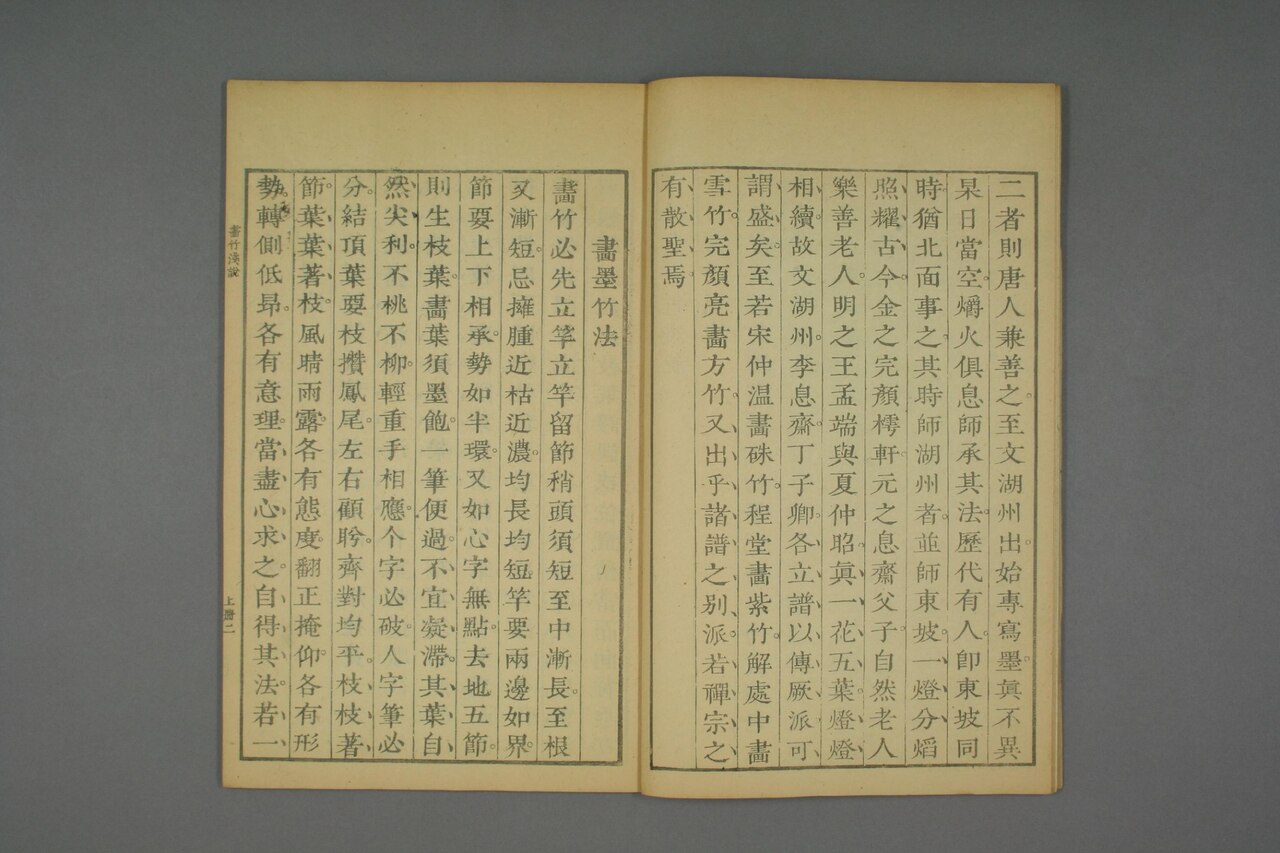 二者則唐人兼善之。至文湖州出。始專寫墨。眞不異
杲日當空。爝火俱息。師承其法。歷代有人。卽東坡同
時。猶北面事之。其時師湖州者、並師東坡。一燈分熖
照耀古今。金之完顏樗軒。元之息齋父子。自然老人
樂善老人。明之王孟端與夏仲昭。眞一花五葉。燈燈
相續。故文湖州。李息齋。丁子卿。各立譜以傳厥派。可
謂盛矣。至若宋仲溫畫硃竹。程堂畫紫竹。解處中畫
雪竹。完顏亮畫方竹。又出乎諸譜之別派。若禪宗之
有散聖焉。
畫墨竹法
畫竹必先立竿。立竿留節。稍頭須短。至中漸長。至根
又漸短。忌擁腫近枯近濃。均長均短。竿要兩邊如界。
節要上下相承。勢如半環。又如心字無點。去地五節。
則生枝葉。畫葉須墨飽。一筆便過。不宜凝滯。其葉自
然尖利。不桃不柳。輕重手相應。个字必破。人字筆必
分。結頂葉要枝攢鳳尾。左右顧盻。齊對均平。枝枝著
節。葉葉著枝。風晴雨露。各有態度。翻正掩仰。各有形
勢。轉側低昻。各有意理。當盡心求之。自得其法。若一
畫竹淺說
上册二